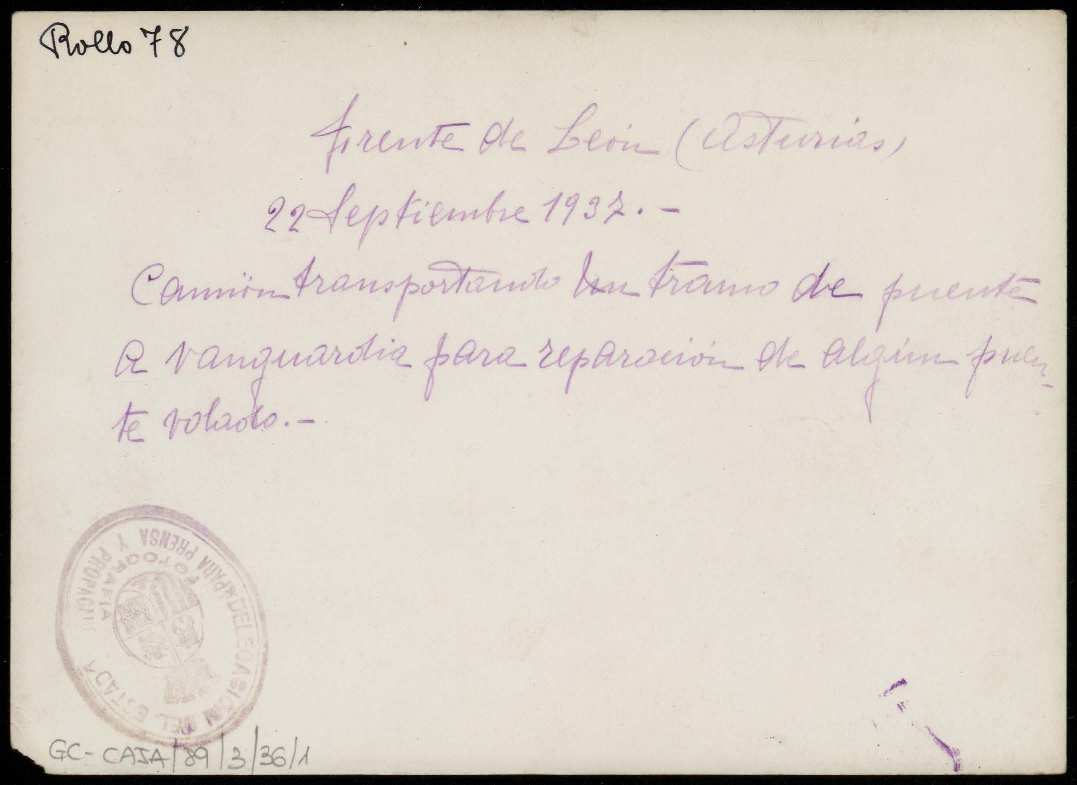 Rollo 78
frente de León (Asturias)
22 Septiembre 1937.-
Camión transportando un tramo de puente
a vanguardia para reparación de algún puen-
te volado.-
DELEGACIÓN DEL ESTADO
PARA PRENSA Y PROPAGDA
FOTOGRAFIA
GC-CAJA/89/3/36/1